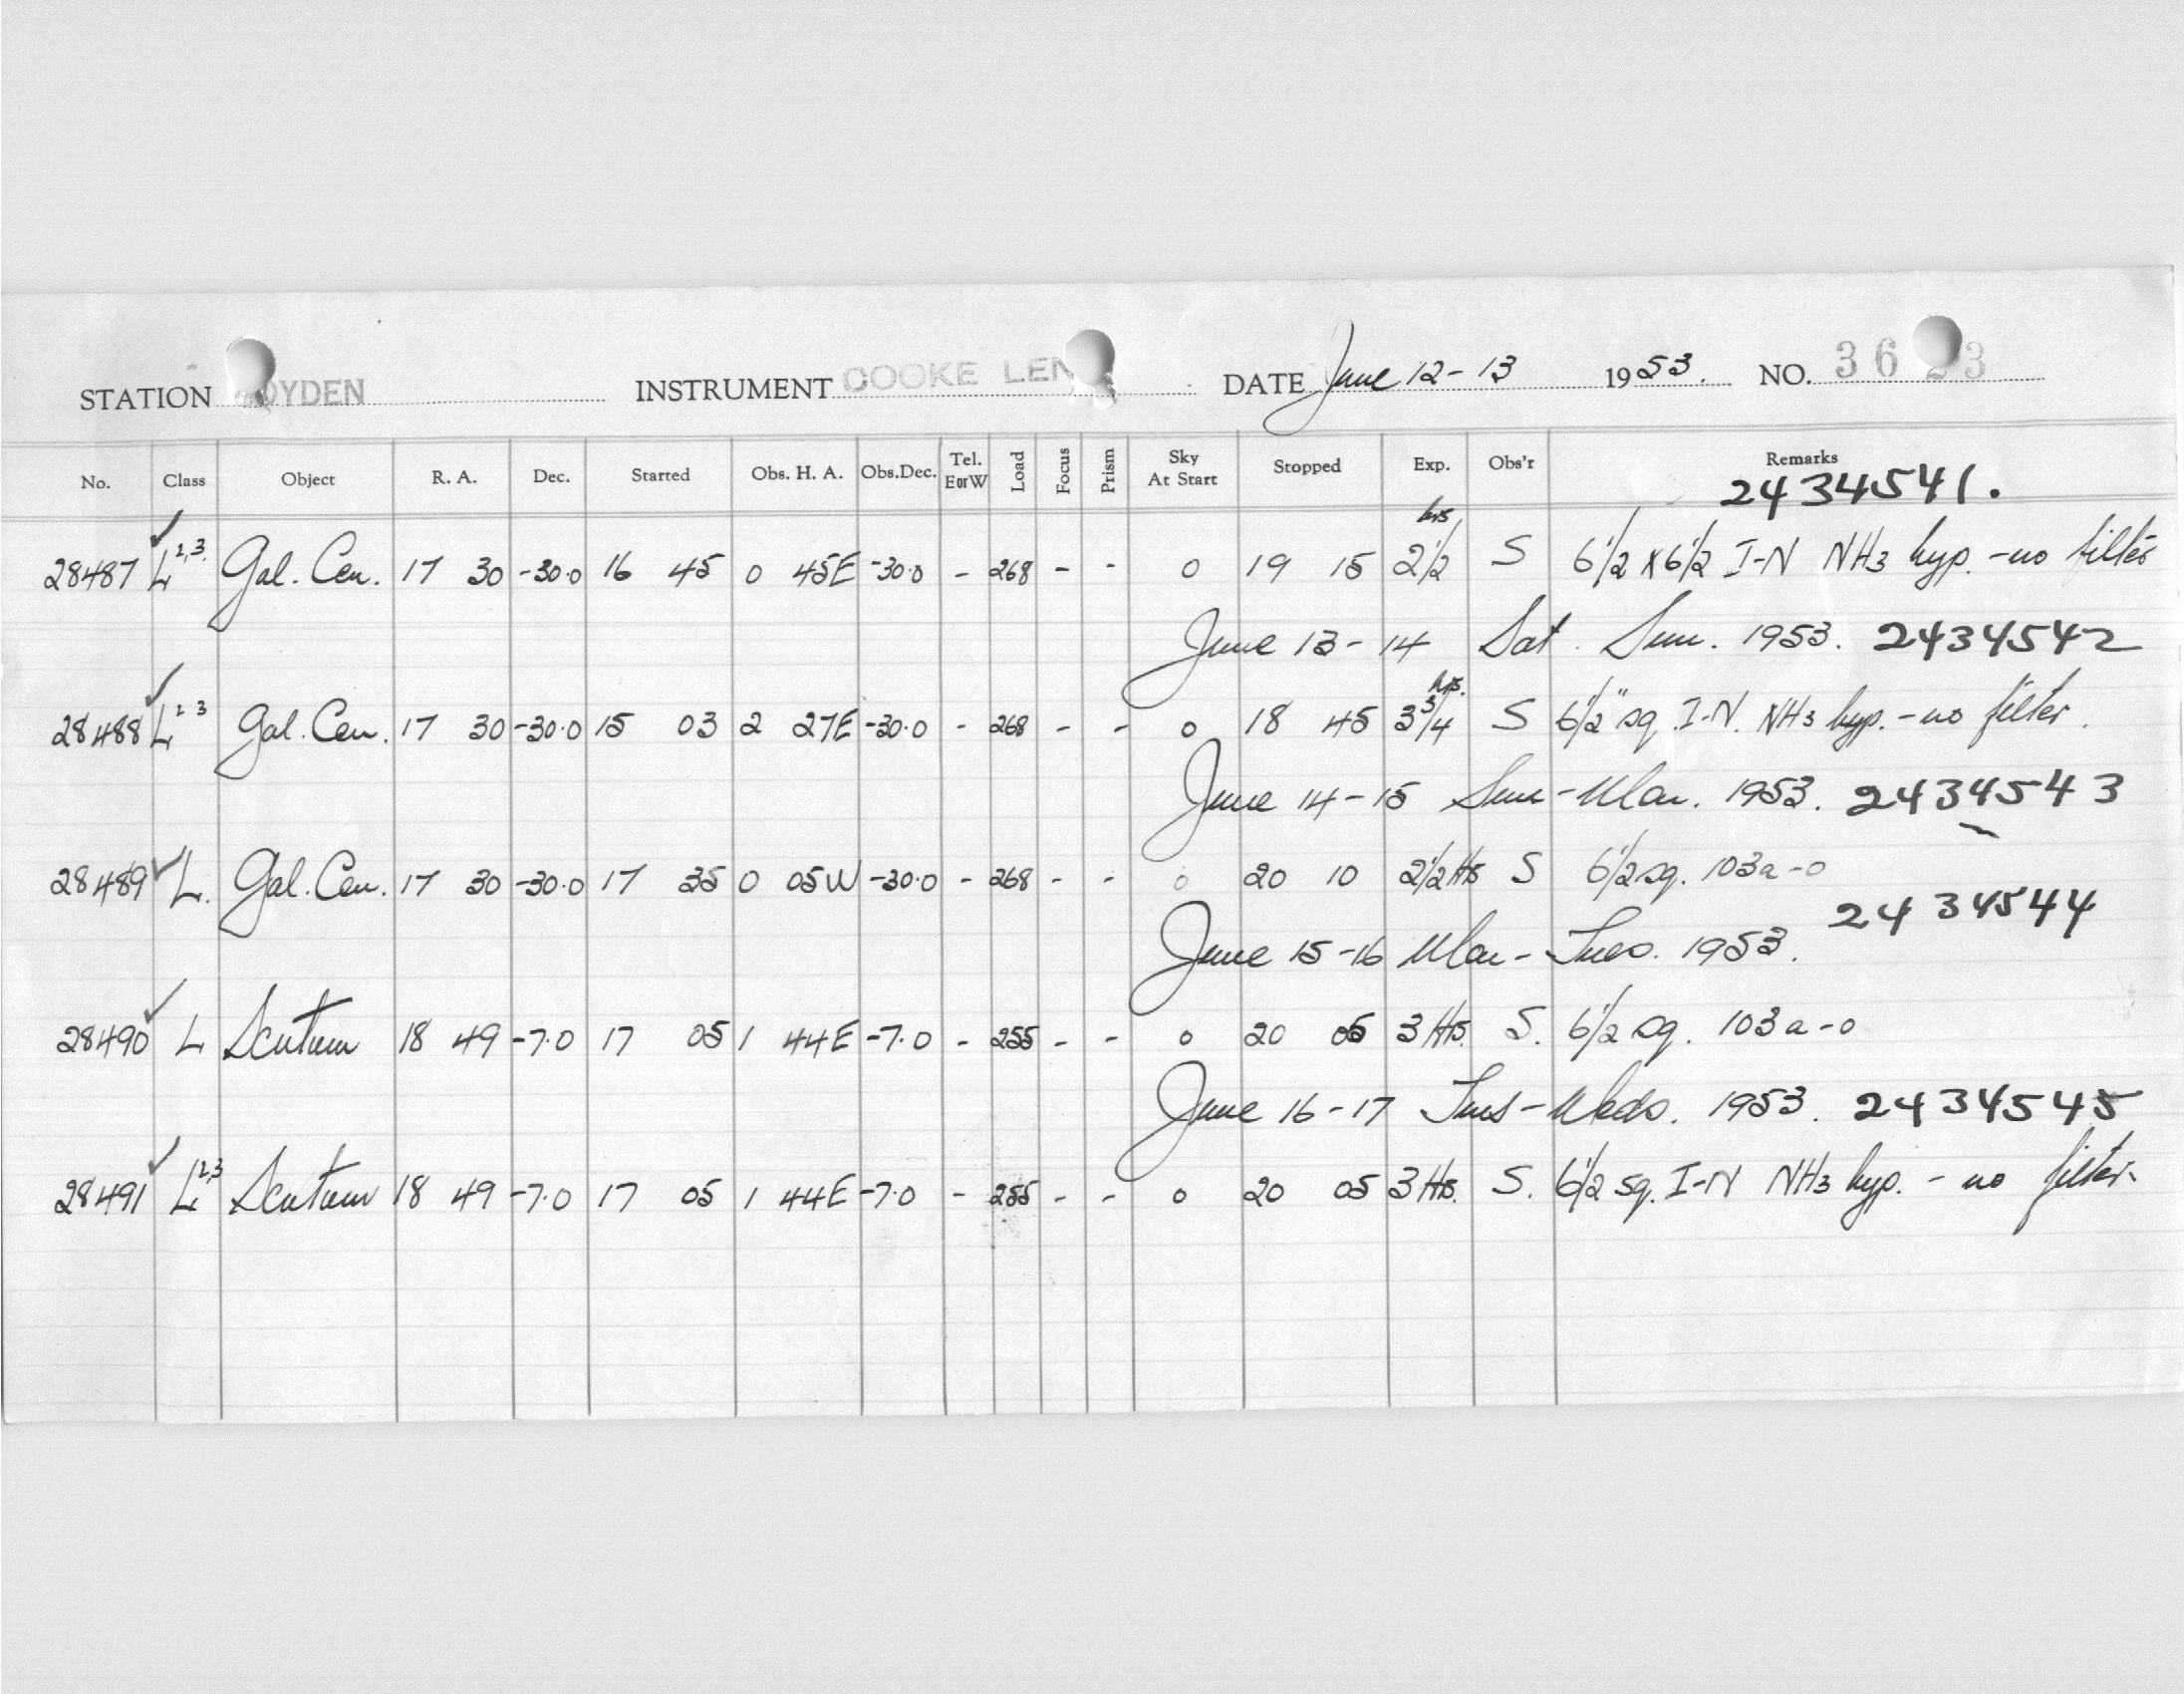 STATION OYDEN INSTRUMENT COOKE LEN DATE June 12-13 1953. NO. 36 3
No. Class Object R. A. Dec. Started Obs. H. A. Obs.Dec. Tel. E or W Load Focus Prism Sky At Start Stopped Exp. Obs'r Remarks
2434541.
28487 L 2,3. Gal. Cen. 17 30 -30.0 16 45 0 45E -30.0 - 268 - - 0 19 15 2 1/2 hrs S 6 1/2 x 6 1/2 I-N NH3 hyp. - no filter
June 13-14 Sat. Sun. 1953. 2434542
28488 L 2 3 Gal. Cen. 17 30 -30.0 15 03 2 27E -30.0 - 268 - - 0 18 45 3 3/4 hrs. S 6 1/2" sq. I-N. NH3 hyp. - no filter.
June 14-15 Sun-Mon. 1953. 2434543
28489 L. Gal. Cen. 17 30 -30.0 17 35 0 05W -30.0 - 268 - - 0 20 10 2 1/2 Hrs S 6 1/2 sq. 103a-0
2434544
June 15-16 Mon-Tues. 1953.
28490 L Scutum 18 49 -7.0 17 05 1 44E -7.0 - 255 - - 0 20 05 3 Hrs. S. 6 1/2 sq. 103a-0
June 16-17 Tues-Weds. 1953. 2434545
28491 L 2,3 Scutum 18 49 -7.0 17 05 1 44E -7.0 - 255 - - 0 20 05 3 Hrs. S. 6 1/2 sq. I-N NH3 hyp. - no filter.